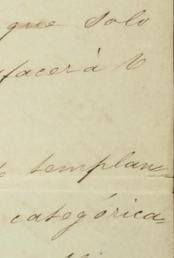 que solo
facerá V
templan=
categórica=